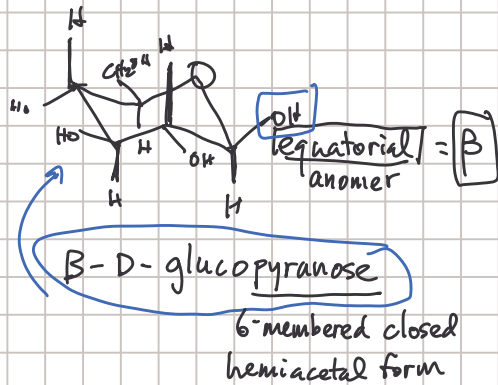 H
CH₂OH H O
HO OH
HO H OH equatorial = β
anomer
H H
β-D-glucopyranose
6-membered closed
hemiacetal form